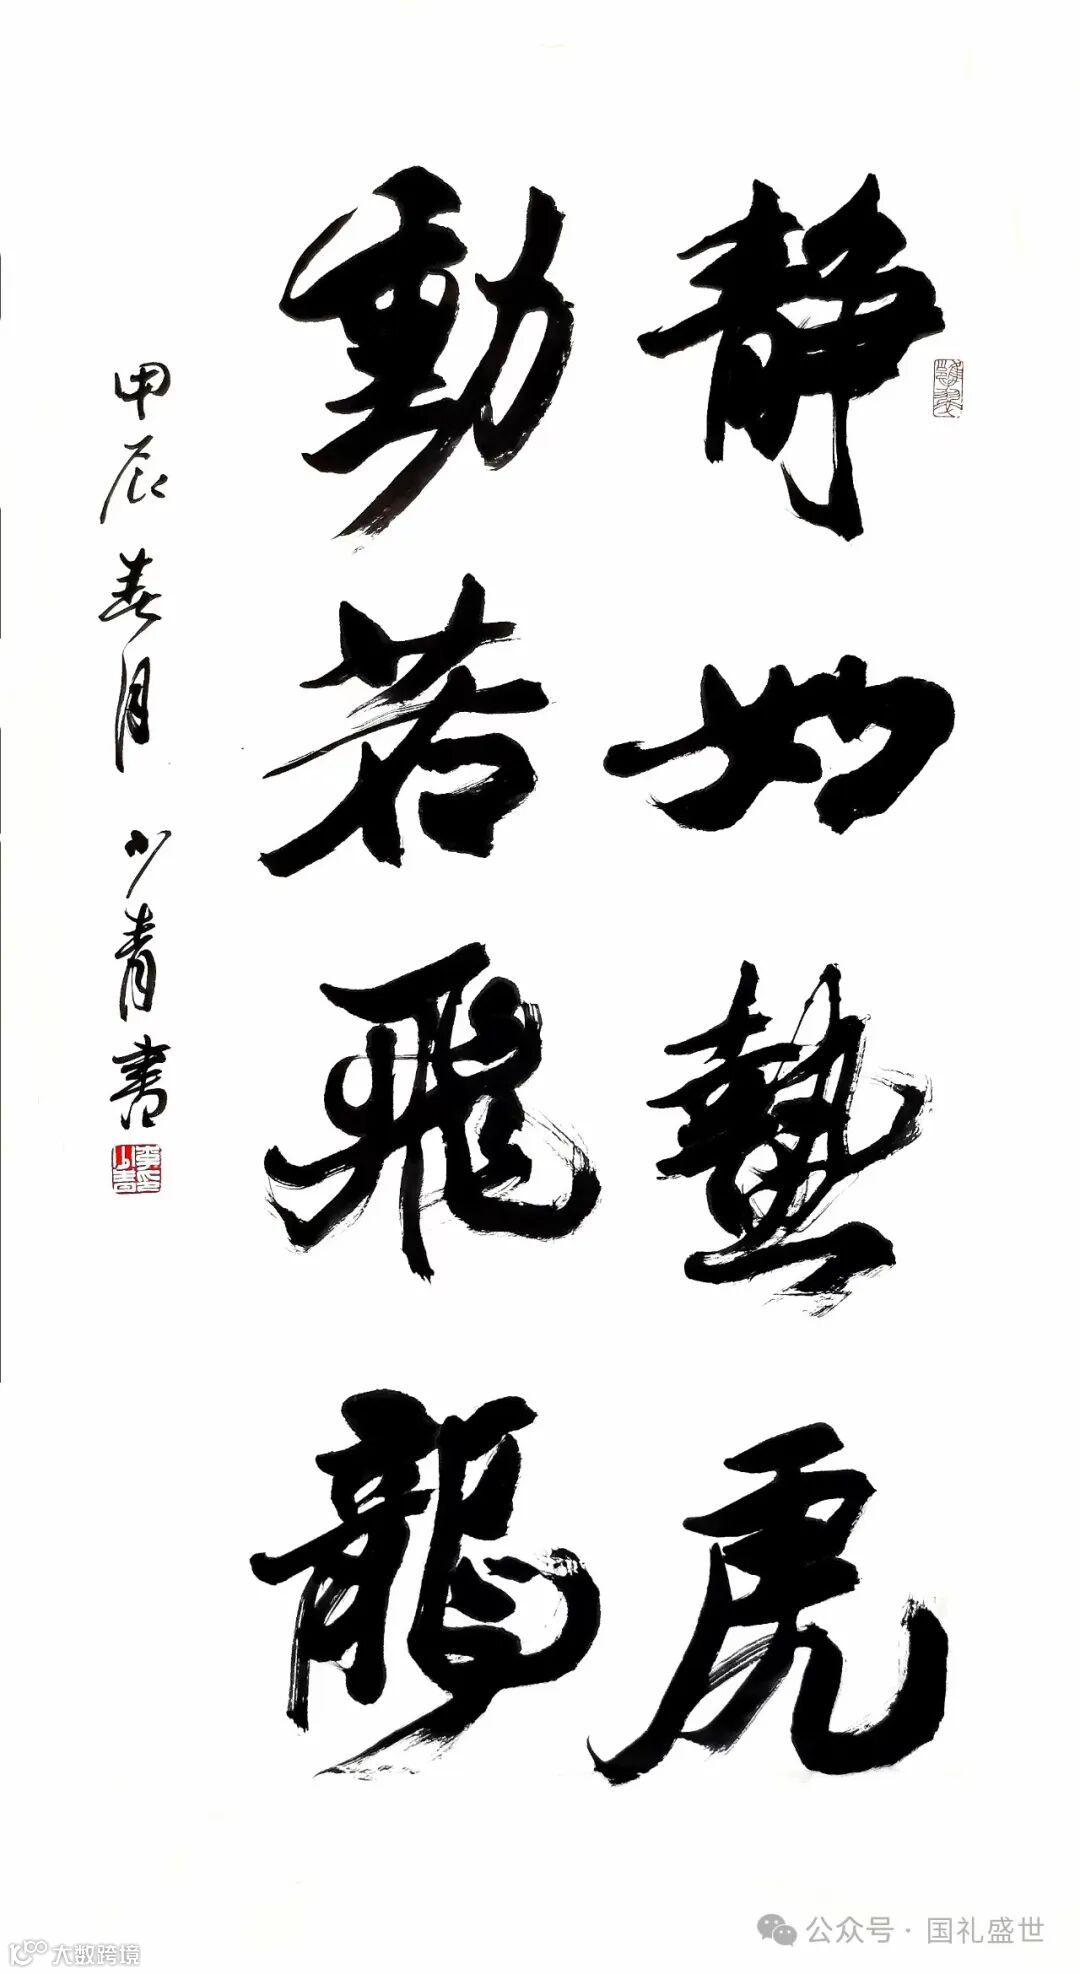 静如蟄虎
動若飛龍
甲辰春月 少青書
公众号·国礼盛世
大数跨境